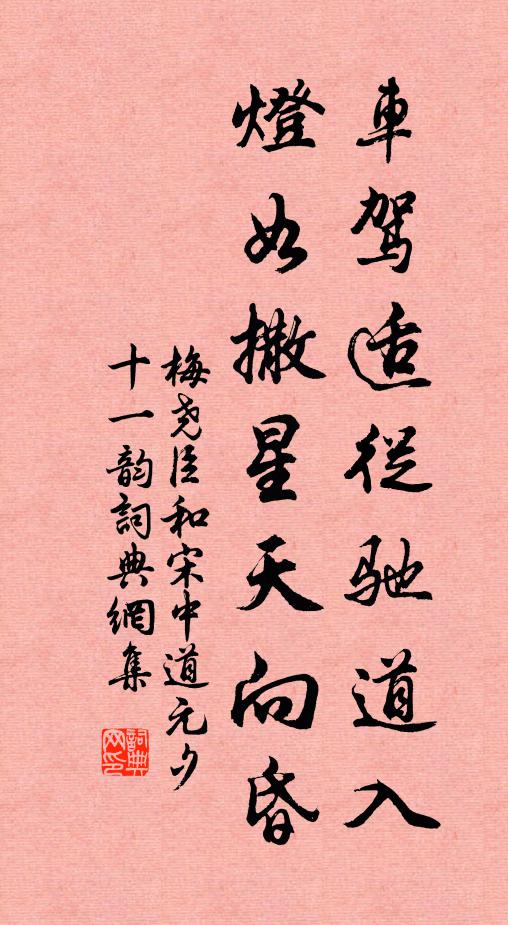 車驾适從驰道入
燈如撒星天向昏
梅尧臣和宋中道元夕
十一韵詞典網集
詞典
网印